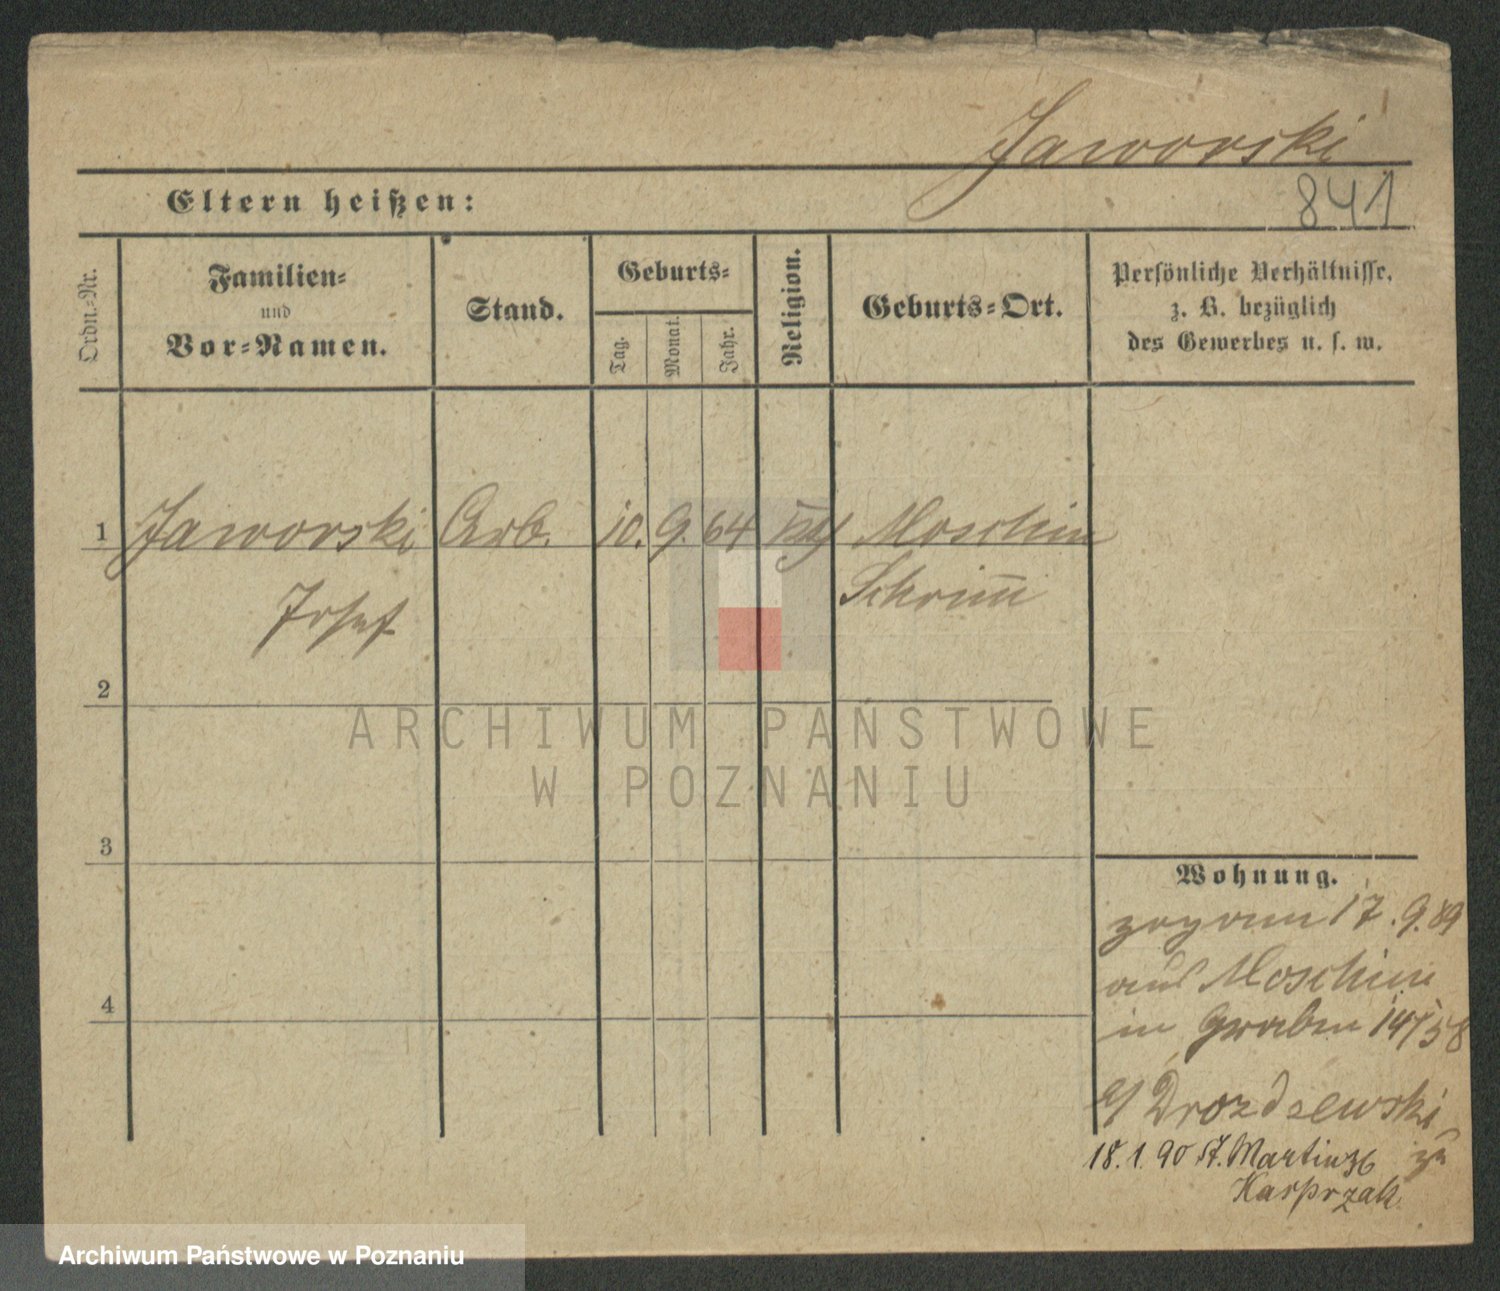 Jaworski
841
Eltern heißen:
Ordn.-Nr.
Familien-
und
Vor-Namen.
Stand.
Geburts-
Tag.
Monat.
Jahr.
Religion.
Geburts-Ort.
Persönliche Verhältnisse,
z. B. bezüglich
des Gewerbes u. s. w.
1 Jaworski Arb. 10. 9. 64 Moschin
Josef Schrim̄
2
3
4
Wohnung.
zog am 17.9.89
aus Moschin
in Graben 14/58
b/ Drozdzewski
18.1.90 St. Martin 36
Kasprzak
ARCHIWUM PAŃSTWOWE
W POZNANIU
Archiwum Państwowe w Poznaniu